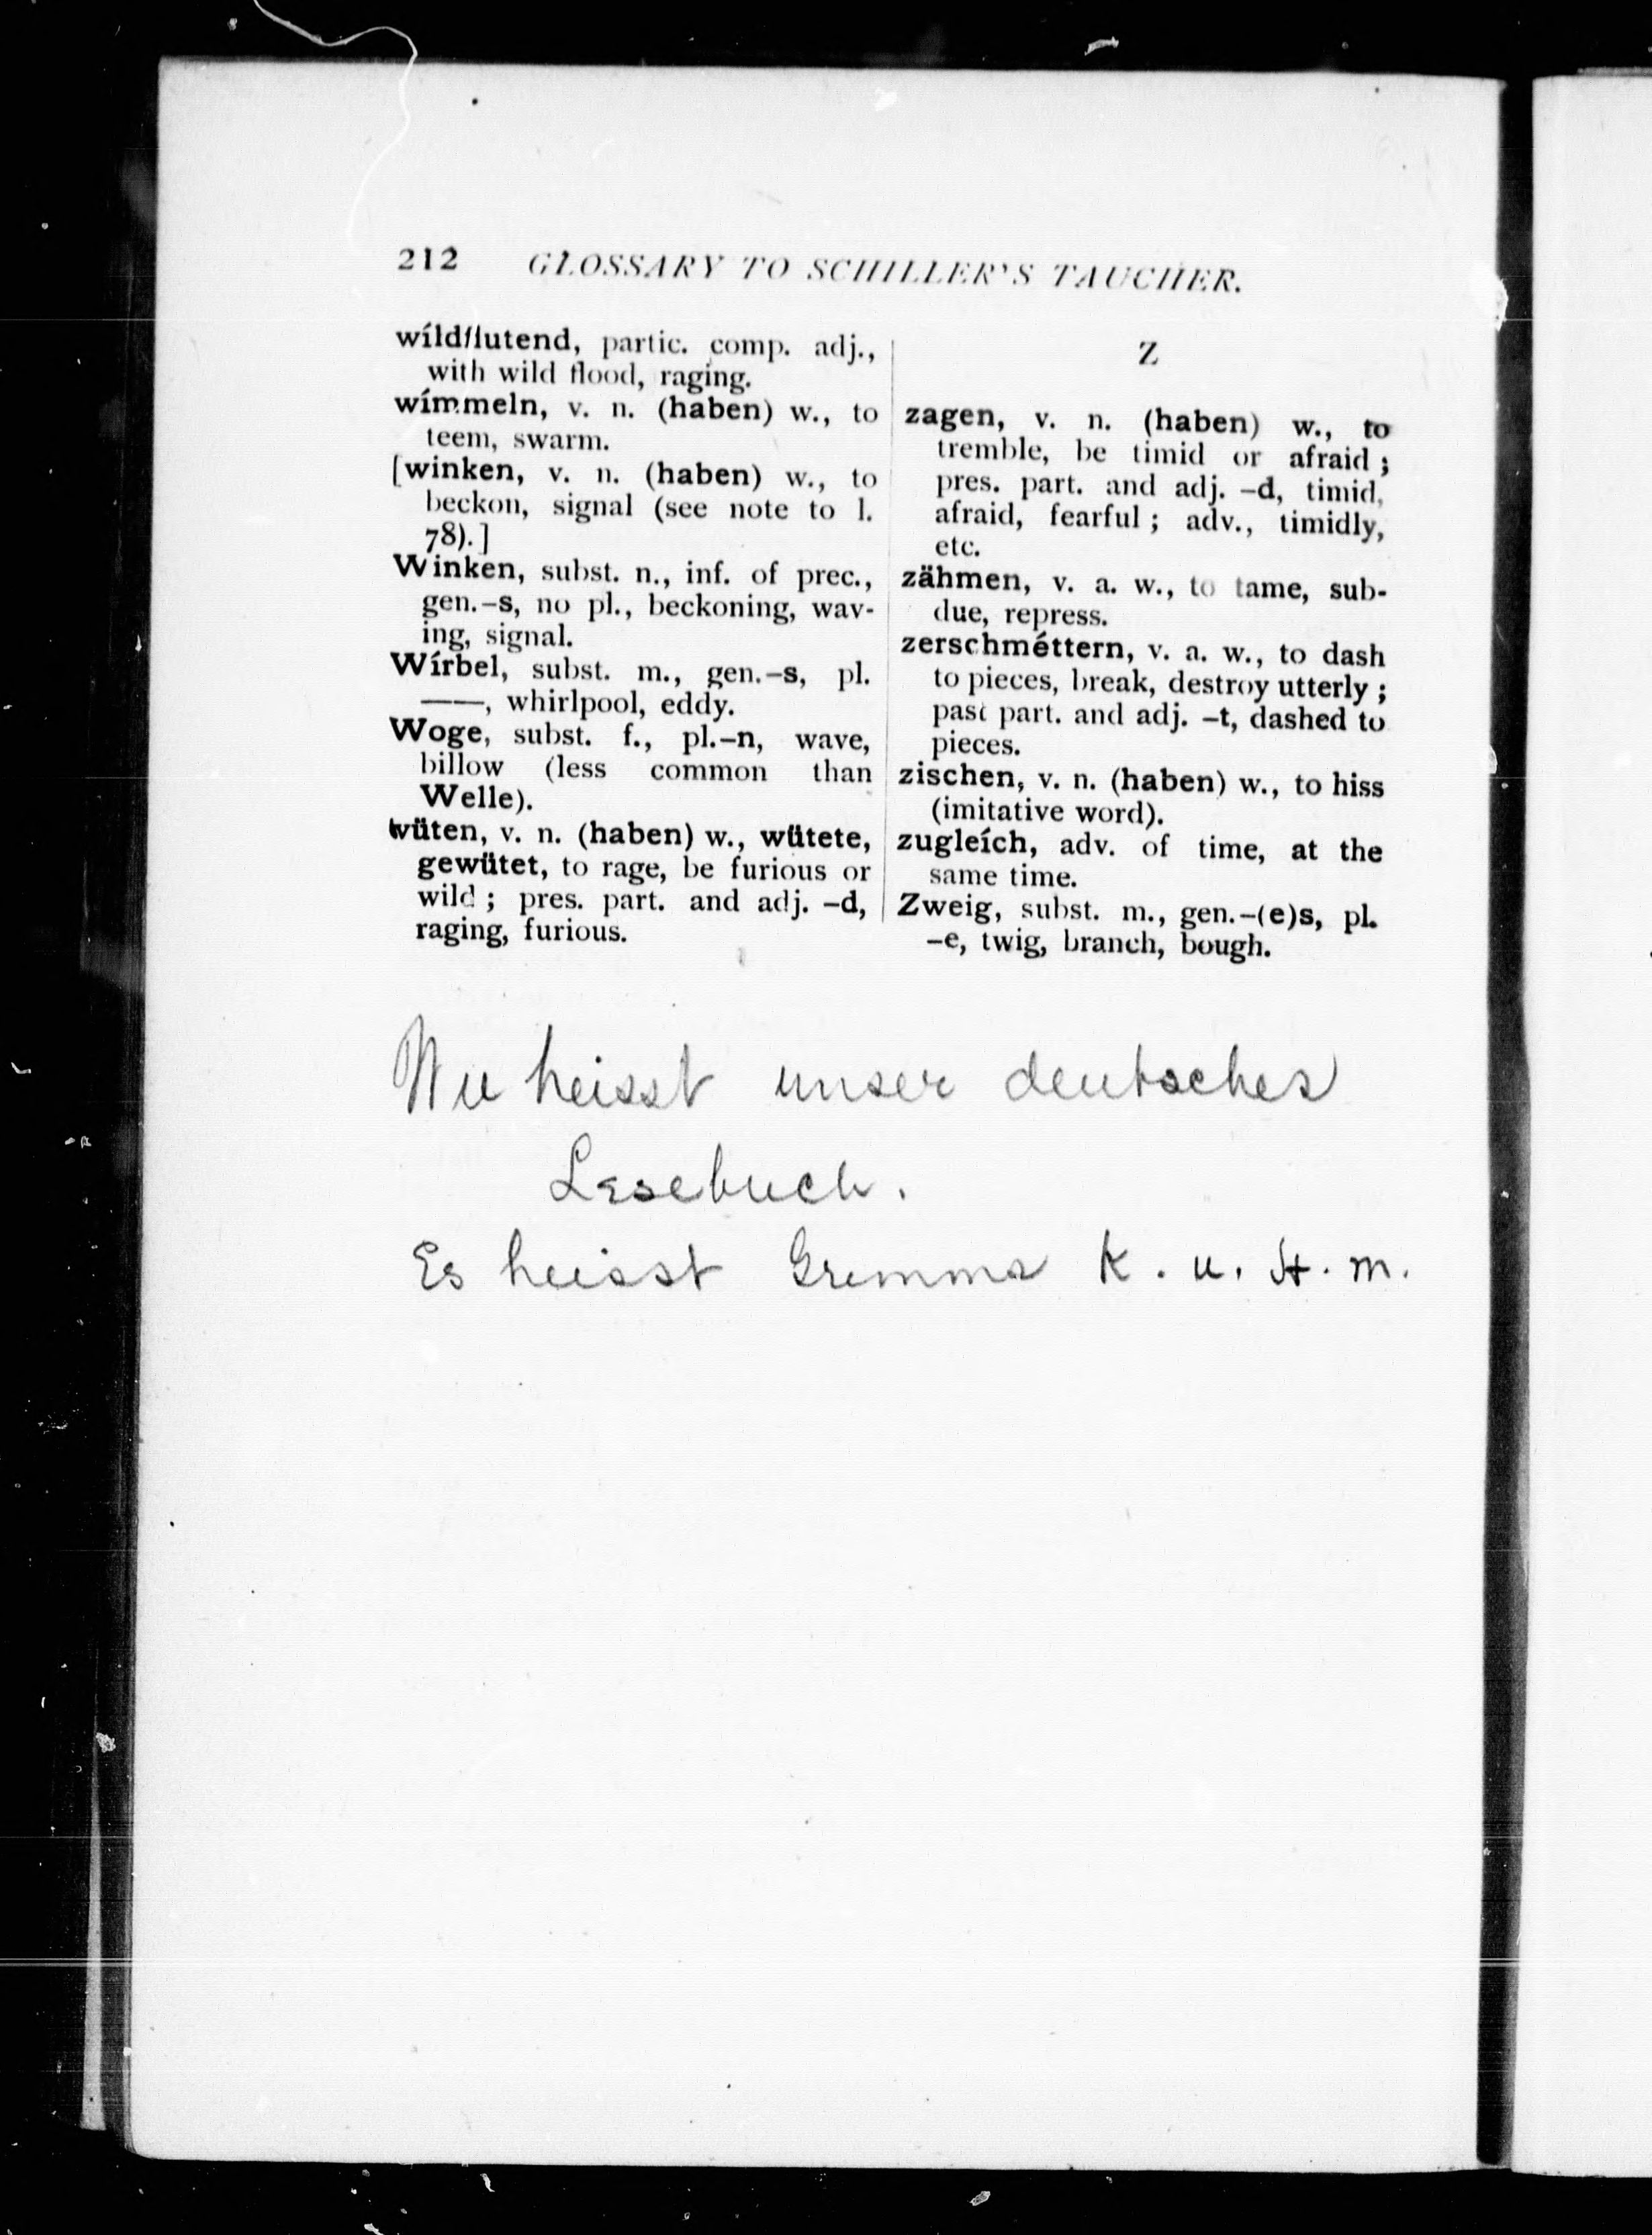 212 GLOSSARY TO SCHILLER'S TAUCHER.
wíldflutend, partic. comp. adj.,
with wild flood, raging.
wímmeln, v. n. (haben) w., to
teem, swarm.
[winken, v. n. (haben) w., to
beckon, signal (see note to l.
78).]
Winken, subst. n., inf. of prec.,
gen.–s, no pl., beckoning, wav-
ing, signal.
Wírbel, subst. m., gen.–s, pl.
——, whirlpool, eddy.
Woge, subst. f., pl.–n, wave,
billow (less common than
Welle).
wüten, v. n. (haben) w., wütete,
gewütet, to rage, be furious or
wild ; pres. part. and adj. –d,
raging, furious.
Z
zagen, v. n. (haben) w., to
tremble, be timid or afraid ;
pres. part. and adj. –d, timid,
afraid, fearful ; adv., timidly,
etc.
zähmen, v. a. w., to tame, sub-
due, repress.
zerschméttern, v. a. w., to dash
to pieces, break, destroy utterly ;
past part. and adj. –t, dashed to
pieces.
zischen, v. n. (haben) w., to hiss
(imitative word).
zugleích, adv. of time, at the
same time.
Zweig, subst. m., gen.–(e)s, pl.
–e, twig, branch, bough.
Wie heisst unser deutsches
Lesebuch.
Es heisst K. u. H. m.